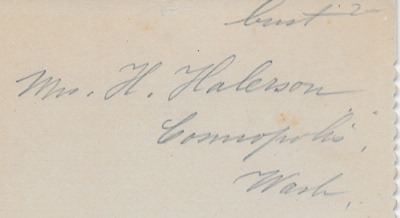 bust 2
Mrs. H. Halerson
Cosmopolis,
Wash.